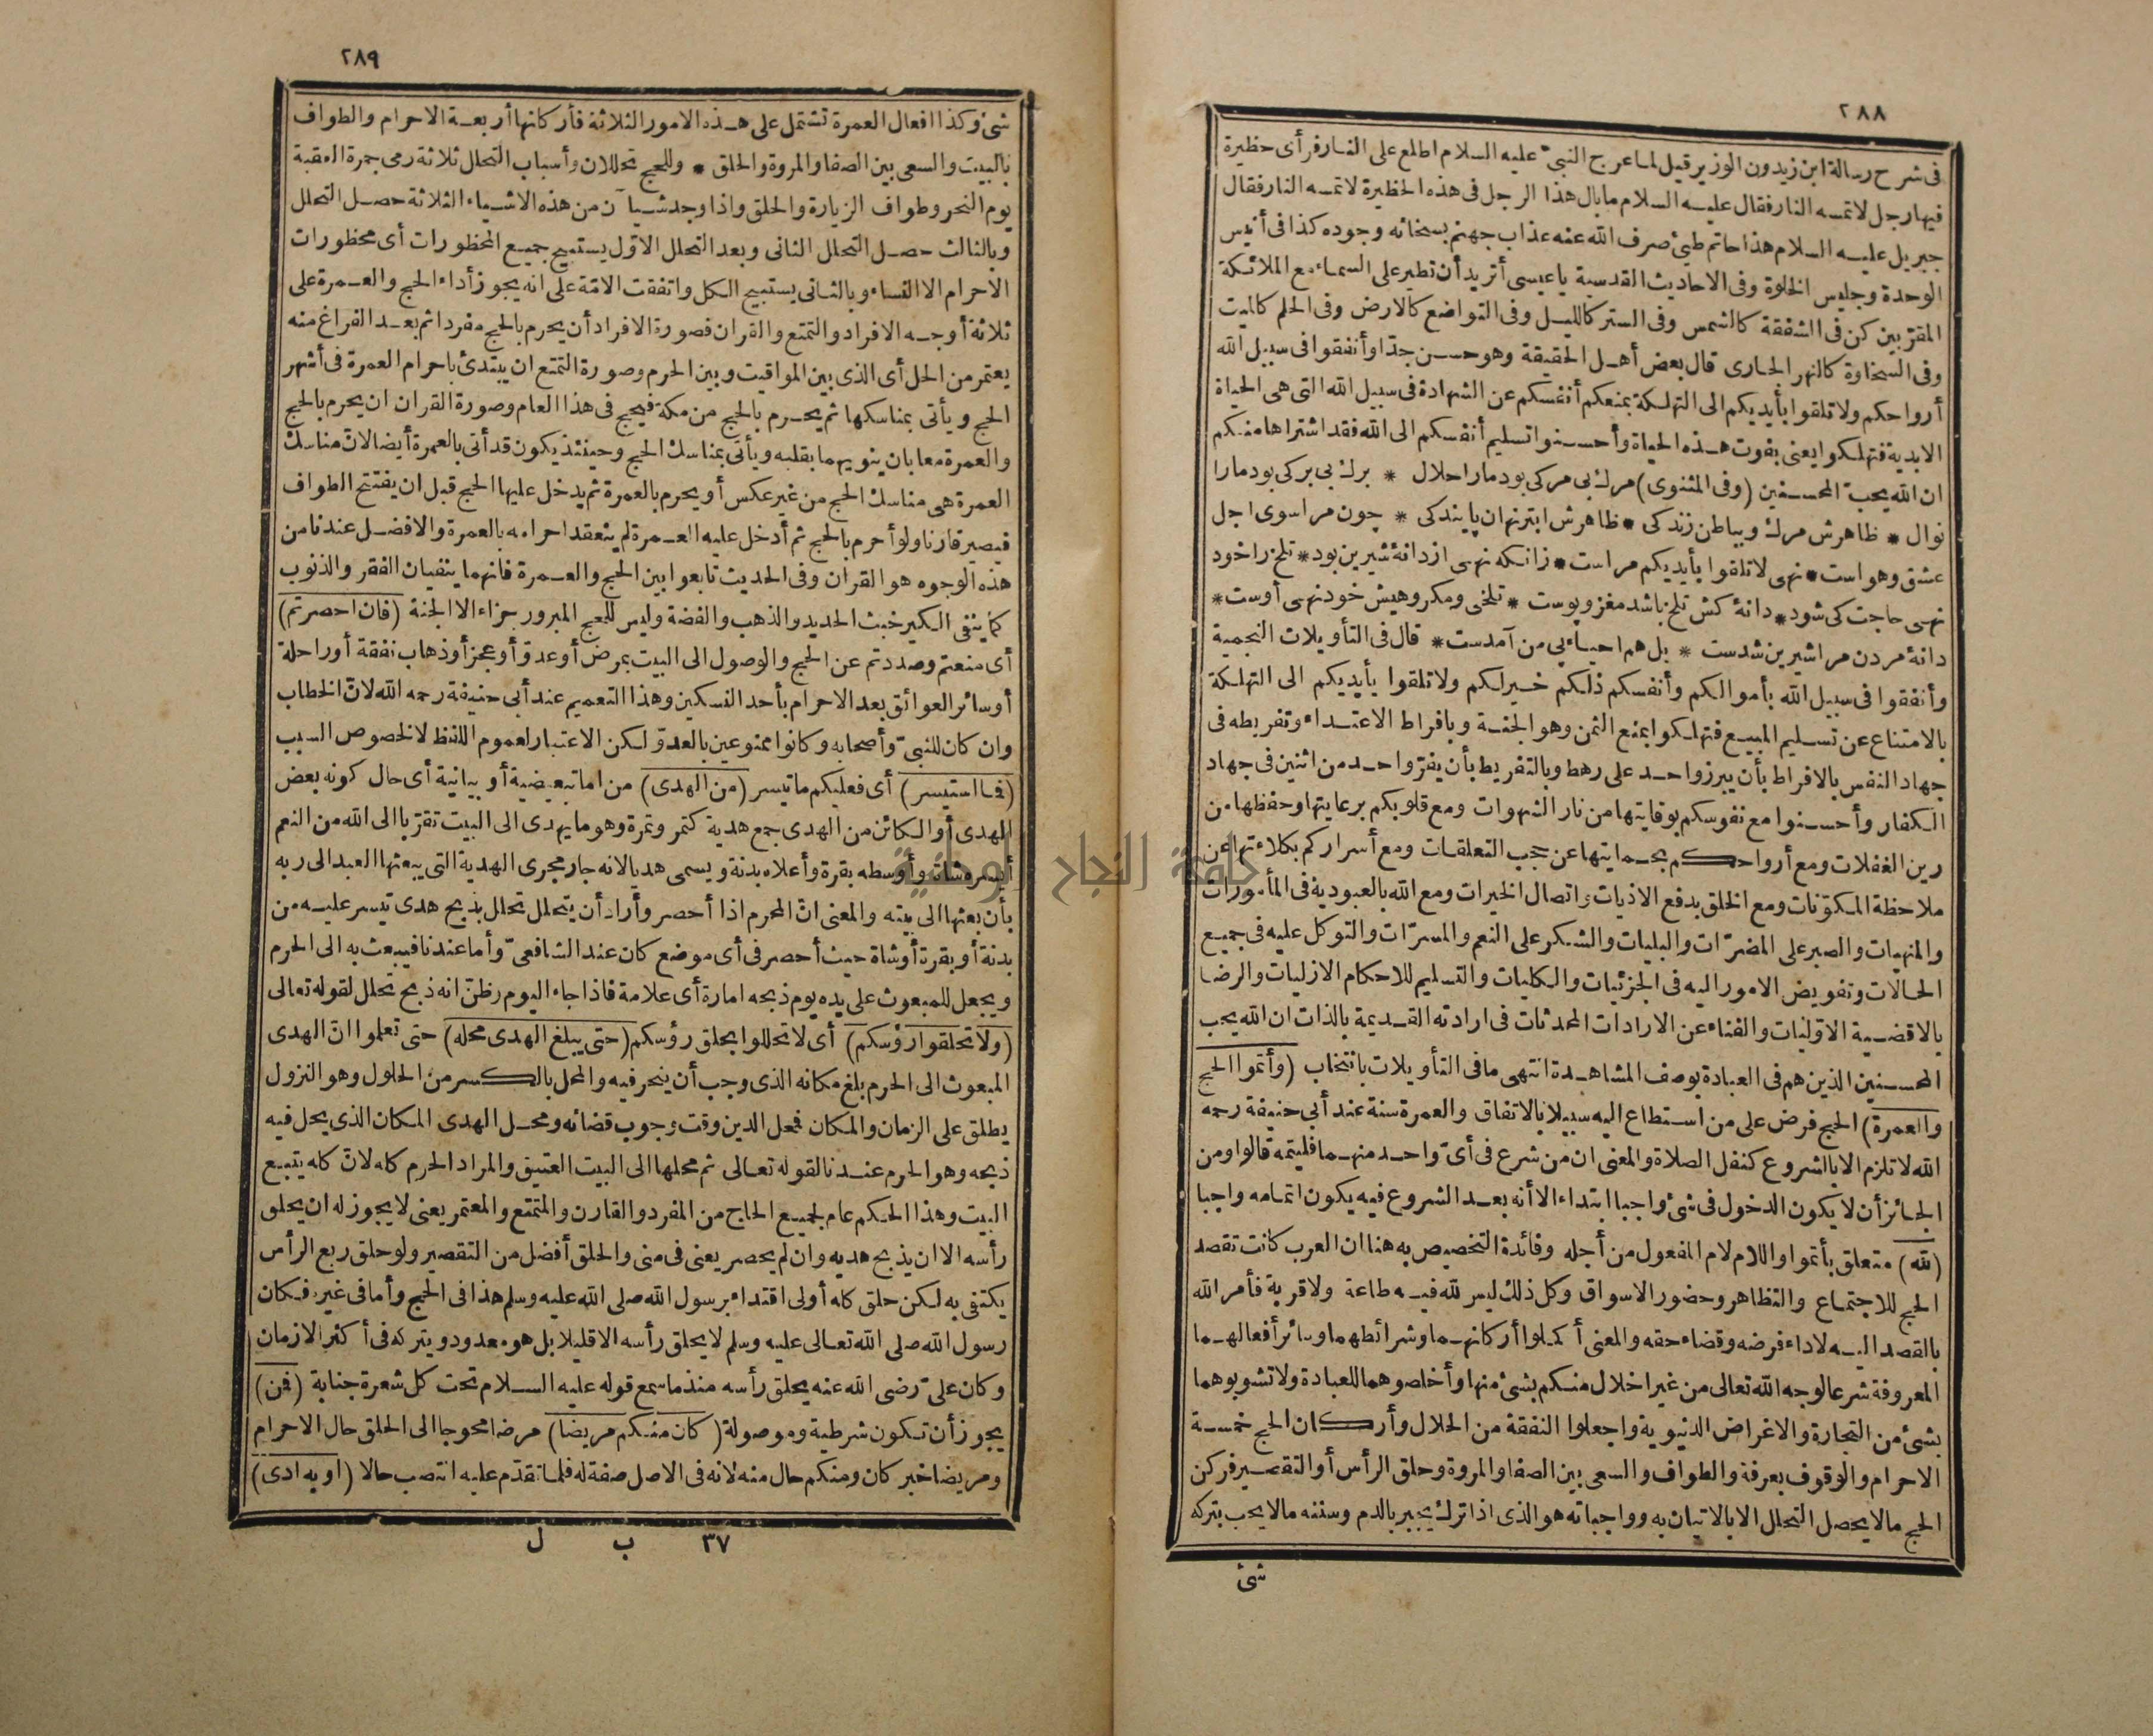 ٢٨٨
فى شرح رسالة ابن زيدون الوزير قيل لما عرج النبىّ عليه السلام اطلع على النار فرأى حظيرة
فيها رجل لا تمسه النار فقال عليه السلام ما بال هذا الرجل فى هذه الحظيرة لا تمسه النار فقال
جبريل عليه السلام هذا حاتم طيئ صرف الله عنه عذاب جهنم بسخائه وجوده كذا فى أنيس
الوحدة وجليس الخلوة وفى الاحاديث القدسية يا عيسى أتريد أن تطير على السماء مع الملائكة
المقرّبين كن فى الشفقة كالشمس وفى الستر كالليل وفى التواضع كالارض وفى الحلم كالميت
وفى السخاوة كالنهر الجارى قال بعض أهل الحقيقة وهو حسن جدّا وأنفقوا فى سبيل الله
أرواحكم ولا تلقوا بأيديكم الى التهلكة بمنعكم أنفسكم عن الشهادة فى سبيل الله التى هى الحياة
الابدية فتهلكوا يعنى بفوت هذه الحياة وأحسنوا تسليم أنفسكم الى الله فقد اشتراها منكم
ان الله يحبّ المحسنين (وفى المثنوى) مرك بى مركى بود مارا حلال * برك بى بركى بود مارا
نوال * ظاهرش مرك وبباطن زندكى * ظاهرش ابتر نهان پايندكى * چون مرا سوى اجل
عشق وهواست * نهى لا تلقوا بأيديكم مراست * زانكه نهى از دانهٔ شيرين بود * تلخ را خود
نهى حاجت كى شود * دانهٔ كش تلخ باشد مغز وپوست * تلخى ومكروهيش خود نهى أوست *
دانهٔ مردن مرا شيرين شدست * بل هم احياء پى من آمدست * قال فى التأويلات النجمية
وأنفقوا فى سبيل الله بأموالكم وأنفسكم ذلكم خير لكم ولا تلقوا بأيديكم الى التهلكة
بالامتناع عن تسليم المبيع فتهلكوا بمنع الثمن وهو الجنة وبافراط الاعتداء وتفريطه فى
جهاد النفس بالافراط بأن يبرز واحد على رهط وبالتفريط بأن يفرّ واحد من اثنين فى جهاد
الكفار وأحسنوا مع نفوسكم بوقايتها من نار الشهوات ومع قلوبكم برعايتها وحفظها من
رين الغفلات ومع أرواحكم بحمايتها عن حجب التعلقات ومع أسراركم بكلاءتها عن
ملاحظة المكوّنات ومع الخلق بدفع الاذيات واتصال الخيرات ومع الله بالعبودية فى المأمورات
والمنهيات والصبر على المضرّات والبليات والشكر على النعم والمسرّات والتوكل عليه فى جميع
الحالات وتفويض الامور اليه فى الجزئيات والكليات والتسليم للاحكام الازليات والرضا
بالاقضية الاوّليات والفناء عن الارادات المحدثات فى ارادته القديمة بالذات ان الله يحب
المحسنين الذين هم فى العبادة بوصف المشاهدة انتهى ما فى التأويلات بانتخاب (وأتموا الحج
والعمرة) الحج فرض على من استطاع اليه سبيلا بالاتفاق والعمرة سنة عند أبى حنيفة رحمه
الله لا تلزم الا بالشروع كنفل الصلاة والمعنى ان من شرع فى أىّ واحد منهما فليتمه قالوا ومن
الجائز أن لا يكون الدخول فى شئ واجبا ابتداء الا أنه بعد الشروع فيه يكون اتمامه واجبا
(لله) متعلق بأتموا واللام لام المفعول من أجله وفائدة التخصيص به هنا ان العرب كانت تقصد
الحج للاجتماع والتظاهر وحضور الاسواق وكل ذلك ليس لله فيه طاعة ولا قربة فأمر الله
بالقصد اليه لاداء فرضه وقضاء حقه والمعنى أكملوا أركانهما وشرائطهما وسائر أفعالهما
المعروفة شرعا لوجه الله تعالى من غير اخلال منكم بشئ منها وأخلصوهما للعبادة ولا تشوبوهما
بشئ من التجارة والاغراض الدنيوية واجعلوا النفقة من الحلال وأركان الحج خمسة
الاحرام والوقوف بعرفة والطواف والسعى بين الصفا والمروة وحلق الرأس أو التقصير فركن
الحج ما لا يحصل التحلل الا بالاتيان به وواجباته هو الذى اذا ترك يجبر بالدم وسننه ما لا يجب بتركه
شئ
٢٨٩
شئ وكذا افعال العمرة تشتمل على هذه الامور الثلاثة فأركانها أربعة الاحرام والطواف
بالبيت والسعى بين الصفا والمروة والحلق * وللحج تحللان وأسباب التحلل ثلاثة رمى جمرة العقبة
يوم النحر وطواف الزيارة والحلق واذا وجد شيآن من هذه الاشياء الثلاثة حصل التحلل
وبالثالث حصل التحلل الثانى وبعد التحلل الاوّل يستبيح جميع المحظورات أى محظورات
الاحرام الا النساء وبالثانى يستبيح الكل واتفقت الامّة على انه يجوز أداء الحج والعمرة على
ثلاثة أوجه الافراد والتمتع والقران فصورة الافراد أن يحرم بالحج مفردا ثم بعد الفراغ منه
يعتمر من الحل أى الذى بين المواقيت وبين الحرم وصورة التمتع ان يبتدئ باحرام العمرة فى أشهر
الحج ويأتى بمناسكها ثم يحرم بالحج من مكة فيحج فى هذا العام وصورة القران ان يحرم بالحج
والعمرة معا بان ينويهما بقلبه ويأتى بمناسك الحج وحينئذ يكون قد أتى بالعمرة أيضا لانّ مناسك
العمرة هى مناسك الحج من غير عكس أو يحرم بالعمرة ثم يدخل عليها الحج قبل ان يفتتح الطواف
فيصير قارنا ولو أحرم بالحج ثم أدخل عليه العمرة لم ينعقد احرامه بالعمرة والافضل عندنا من
هذه الوجوه هو القران وفى الحديث تابعوا بين الحج والعمرة فانهما ينفيان الفقر والذنوب
كما ينفى الكير خبث الحديد والذهب والفضة وليس للحج المبرور جزاء الا الجنة (فان احصرتم)
أى منعتم وصددتم عن الحج والوصول الى البيت بمرض أو عدوّ أو عجز أو ذهاب نفقة أو راحلة
أو سائر العوائق بعد الاحرام بأحد النسكين وهذا التعميم عند أبى حنيفة رحمه الله لانّ الخطاب
وان كان للنبىّ وأصحابه وكانوا ممنوعين بالعدوّ لكن الاعتبار لعموم اللفظ لا لخصوص السبب
(فما استيسر) أى فعليكم ما تيسر (من الهدى) من اما تبعيضية أو بيانية أى حال كونه بعض
الهدى أو الكائن من الهدى جمع هدية كتمر وتمرة وهو ما يهدى الى البيت تقرّبا الى الله من النعم
أيسره شاة وأوسطه بقرة وأعلاه بدنة ويسمى هديا لانه جار مجرى الهدية التى يبعثها العبد الى ربه
بأن بعثها الى بيته والمعنى انّ المحرم اذا أحصر وأراد أن يتحلل تحلل بذبح هدى تيسر عليه من
بدنة أو بقرة أو شاة حيث أحصر فى أى موضع كان عند الشافعىّ وأما عندنا فيبعث به الى الحرم
ويجعل للمبعوث على يده يوم ذبحه امارة أى علامة فاذا جاء اليوم وظنّ انه ذبح تحلل لقوله تعالى
(ولا تحلقوا رؤسكم) أى لا تحللوا بحلق رؤسكم (حتى يبلغ الهدى محله) حتى تعلموا انّ الهدى
المبعوث الى الحرم بلغ مكانه الذى وجب أن ينحر فيه والمحل بالكسر من الحلول وهو النزول
يطلق على الزمان والمكان فمحل الدين وقت وجوب قضائه ومحل الهدى المكان الذى يحل فيه
ذبحه وهو الحرم عندنا لقوله تعالى ثم محلها الى البيت العتيق والمراد الحرم كله لانّ كله يتبع
البيت وهذا الحكم عام لجميع الحاج من المفرد والقارن والمتمتع والمعتمر يعنى لا يجوز له ان يحلق
رأسه الا ان يذبح هديه وان لم يحصر يعنى فى منى والحلق أفضل من التقصير ولو حلق ربع الرأس
يكتفى به لكن حلق كله أولى اقتداء برسول الله صلى الله عليه وسلم هذا فى الحج وأما فى غيره فكان
رسول الله صلى الله تعالى عليه وسلم لا يحلق رأسه الا قليلا بل هو معدود ويتركه فى أكثر الازمان
وكان علىّ رضى الله عنه يحلق رأسه منذ ما سمع قوله عليه السلام تحت كل شعرة جنابة (فمن)
يجوز أن تكون شرطية وموصولة (كان منكم مريضا) مرضا محوجا الى الحلق حال الاحرام
ومريضا خبر كان ومنكم حال منه لانه فى الاصل صفة له فلما تقدّم عليه انتصب حالا (أو به أذى)
٣٧ ب ل